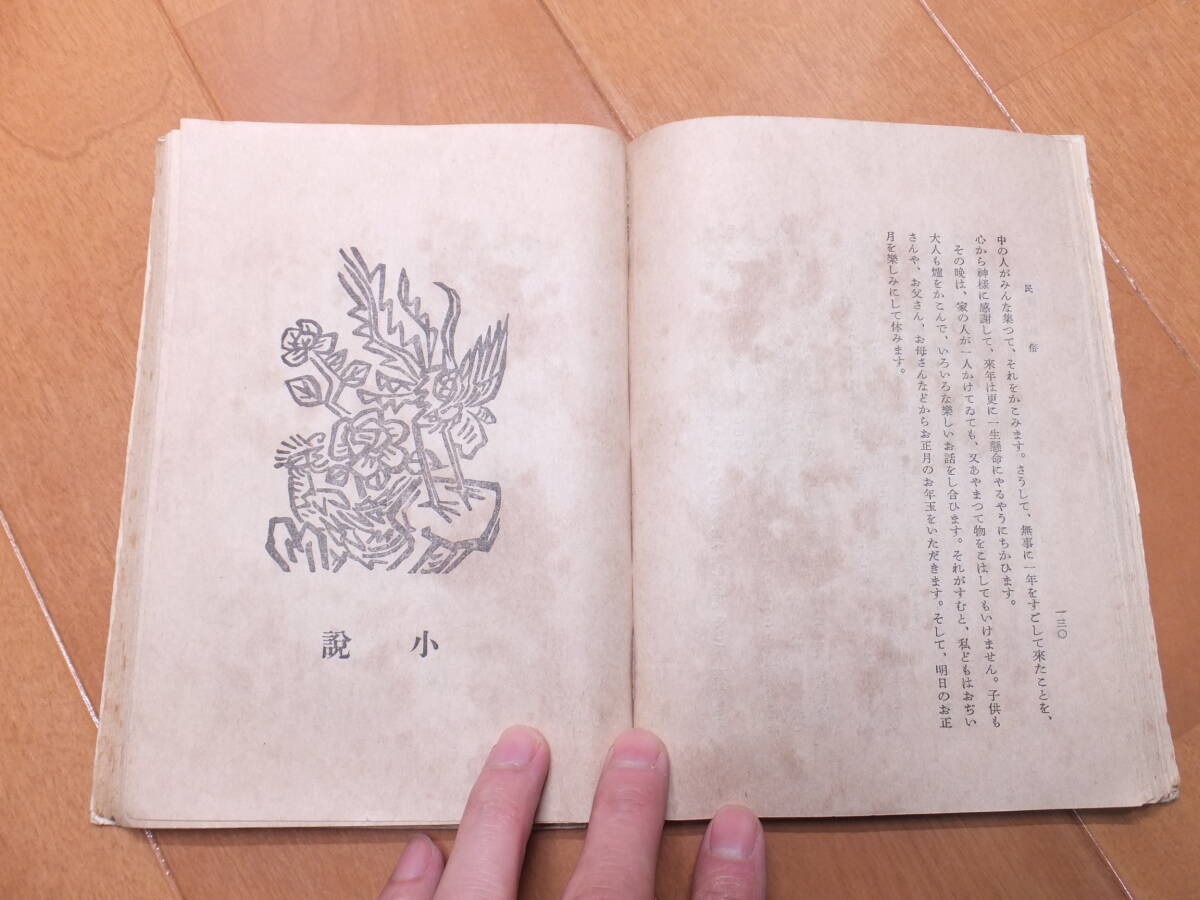 民俗
一三〇
中の人がみんな集つて、それをかこみます。さうして、無事に一年をすごして来たことを、
心から神様に感謝して、来年は更に一生懸命にやるやうにちかひます。
その晩は、家の人が一人かけてゐても、又あやまつて物をこはしてもいけません。子供も
大人も爐をかこんで、いろいろな樂しいお話をし合ひます。それがすむと、私どもはおぢい
さんや、お父さん、お母さんなどからお正月のお年玉をいただきます。そして、明日のお正
月を樂しみにして休みます。
小説